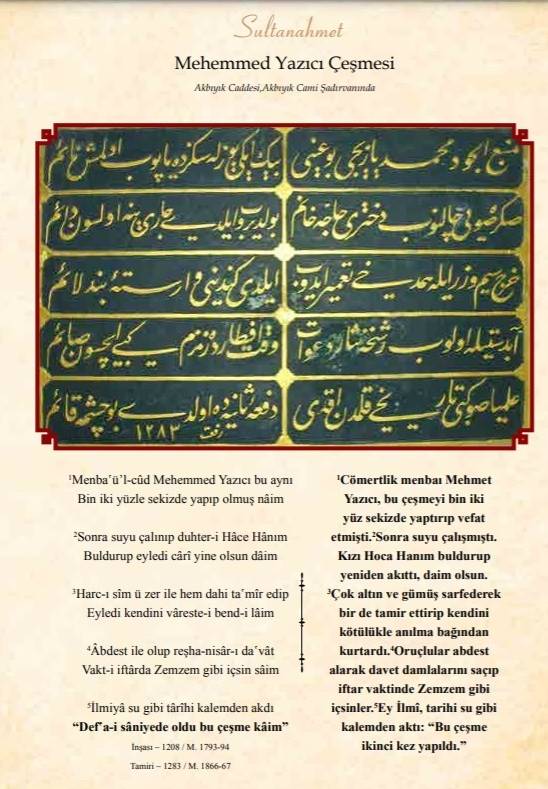 Sultanahmet
Mehemmed Yazıcı Çeşmesi
Akbıyık Caddesi,Akbıyık Cami Şadırvanında
منبع الجود محمد یازیجی بو عینی
بیك ایكی یوزله سكزده یاپوب اولمش نائم
صكره صویی چالنوب دختری حاجه خانم
بولدیروب ایلدی جاری ینه اولسون دائم
خرج سیم و زر ایله هم دخی تعمیر ایدوب
ایلدی كندینی وارستهٔ بند لائم
آبدستیله اولوب رشحه نثار دعوات
وقت افطارده زمزم كبی ایچسون صائم
علمیا صو كبی تاریخی قلمدن آقدی
دفعهٔ ثانیه ده اولدی بو چشمه قائم
رفعت
١٢٨٣
¹Menba'ü'l-cûd Mehemmed Yazıcı bu aynı
Bin iki yüzle sekizde yapıp olmuş nâim
²Sonra suyu çalınıp duhter-i Hâce Hânım
Buldurup eyledi cârî yine olsun dâim
³Harc-ı sîm ü zer ile hem dahi ta'mîr edip
Eyledi kendini vâreste-i bend-i lâim
⁴Âbdest ile olup reşha-nisâr-ı da'vât
Vakt-i iftârda Zemzem gibi içsin sâim
⁵İlmiyâ su gibi târîhi kalemden akdı
“Def'a-i sâniyede oldu bu çeşme kâim”
İnşası – 1208 / M. 1793-94
Tamiri – 1283 / M. 1866-67
¹Cömertlik menbaı Mehmet
Yazıcı, bu çeşmeyi bin iki
yüz sekizde yaptırıp vefat
etmişti.²Sonra suyu çalışmıştı.
Kızı Hoca Hanım buldurup
yeniden akıttı, daim olsun.
³Çok altın ve gümüş sarfederek
bir de tamir ettirip kendini
kötülükle anılma bağından
kurtardı.⁴Oruçlular abdest
alarak davet damlalarını saçıp
iftar vaktinde Zemzem gibi
içsinler.⁵Ey İlmî, tarihi su gibi
kalemden aktı: “Bu çeşme
ikinci kez yapıldı.”